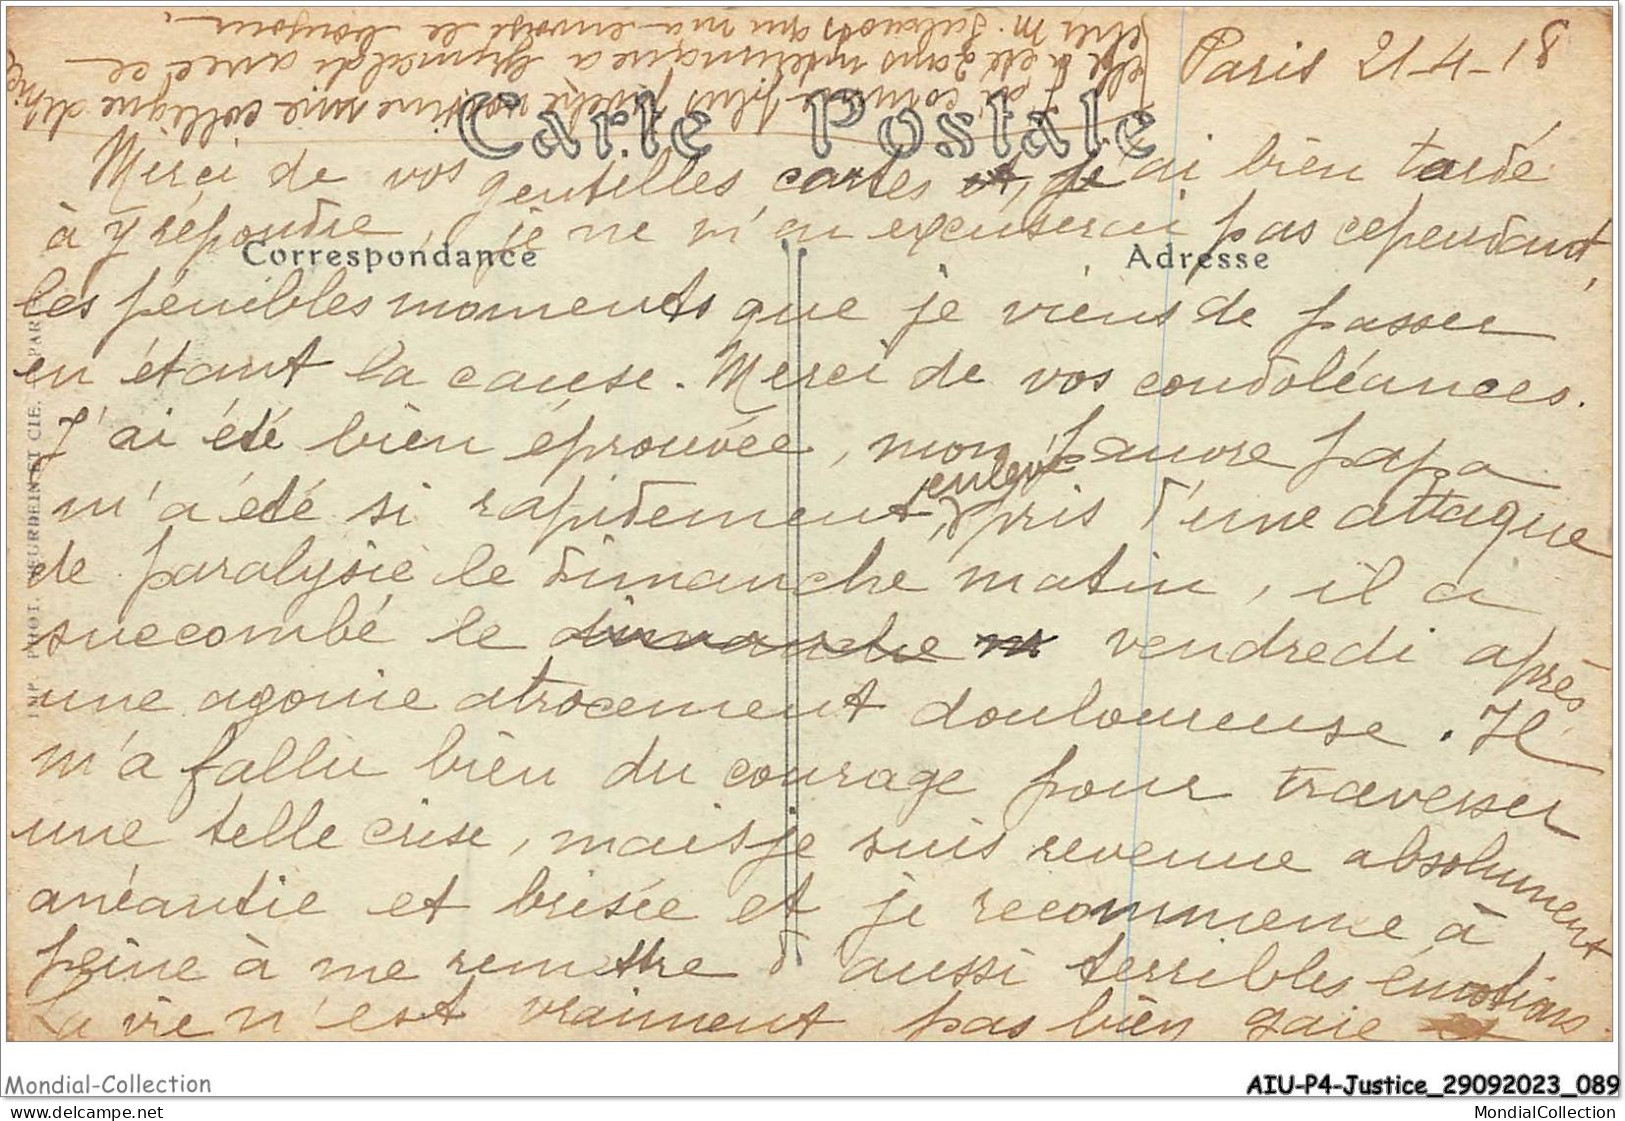 Paris 21-4-18
Carte Postale
Merci de vos gentilles cartes et, j'ai bien tardé
à y répondre, je ne m'en excuserai pas cependant,
Correspondance
Adresse
les pénibles moments que je viens de passer
en étant la cause. Merci de vos condoléances.
J'ai été bien éprouvée, mon pauvre papa
m'a été si rapidement enlevé, pris d'une attaque
de paralysie le dimanche matin, il a
succombé le dimanche m vendredi après
une agonie atrocement douloureuse. Il
m'a fallu bien du courage pour traverser
une telle crise, mais je suis revenue absolument
anéantie et brisée et je recommence à
peine à me remettre d'aussi terribles émotions.
La vie n'est vraiment pas bien gaie et
J'ai comme plus proche voisine une collègue
elle a été 2 ans interimaire a Grimaldi avec ce
cher M. qui m'a envoyé le bonjour.
IMP. PHOT. NEURDEIN ET CIE. PARIS
Mondial-Collection
AIU-P4-Justice_29092023_089
www.delcampe.net
MondialCollection